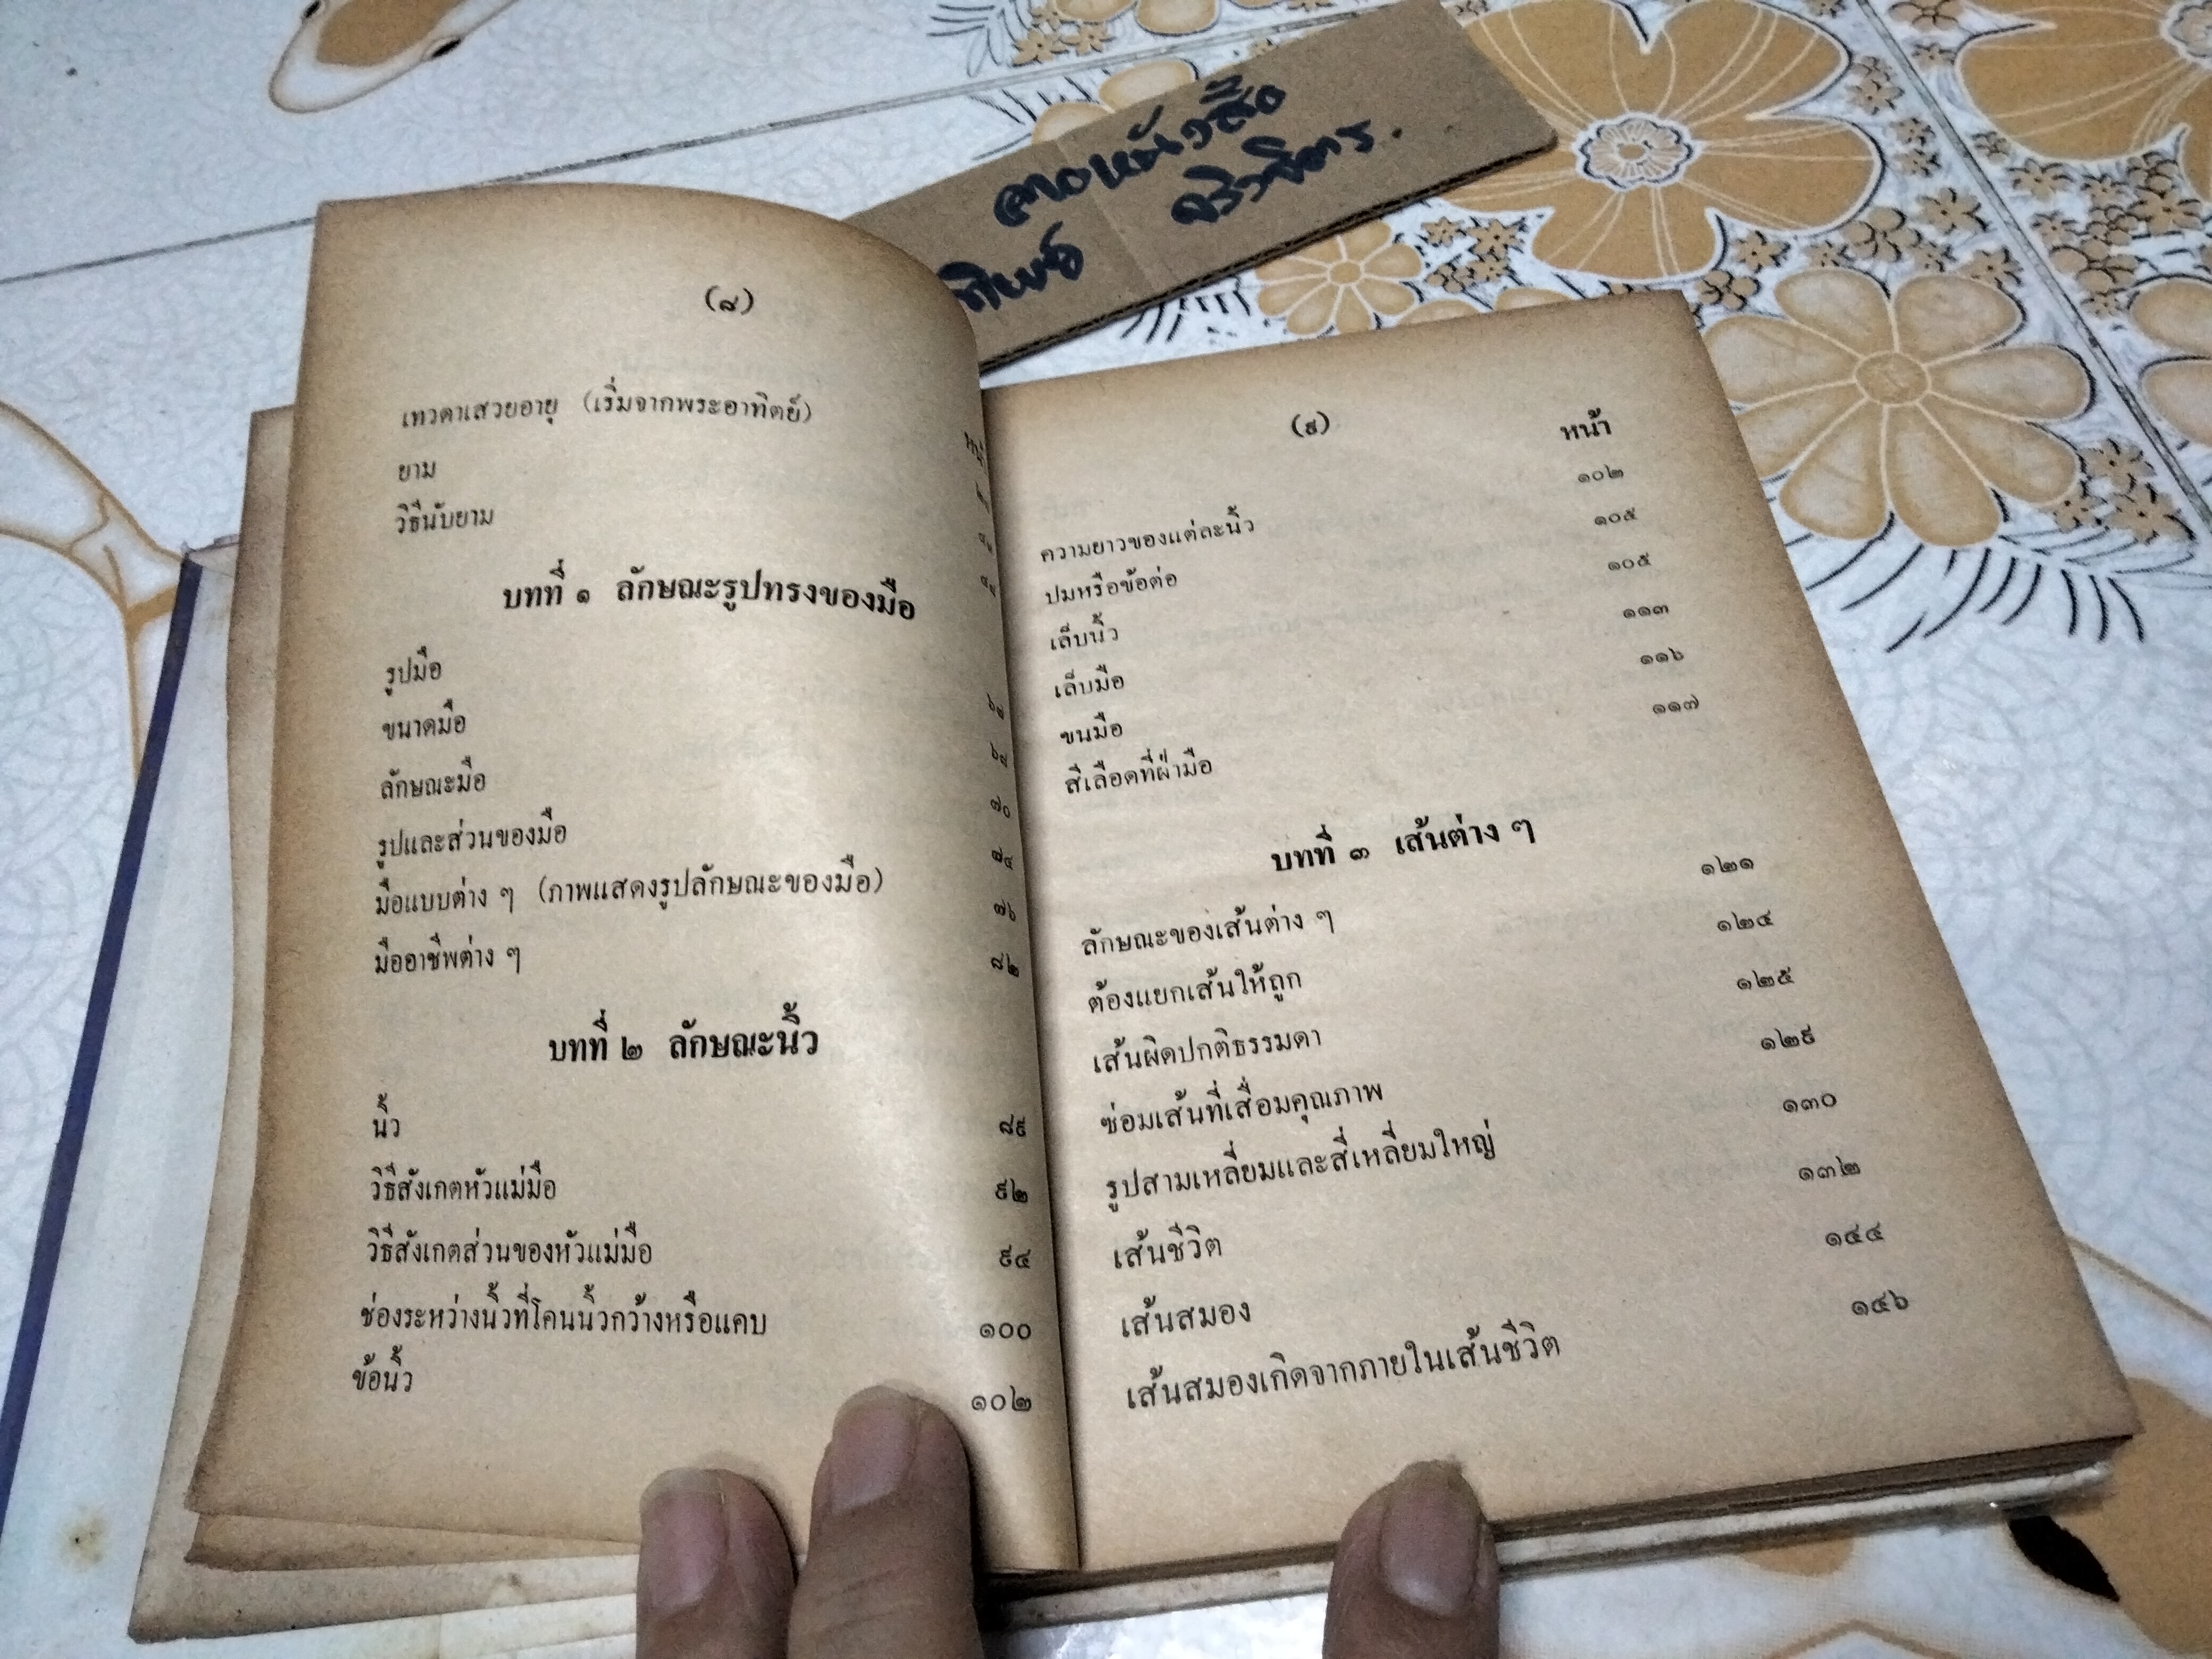 ลายหนังสือ
ทิพย์ จริวจิตร.
(๘)
เทวดาเสวยอายุ (เริ่มจากพระอาทิตย์)
ยาม
วิธีนับยาม
บทที่ ๑ ลักษณะรูปทรงของมือ
รูปมือ
ขนาดมือ
ลักษณะมือ ๗๐
รูปและส่วนของมือ ๗๔
มือแบบต่าง ๆ (ภาพแสดงรูปลักษณะของมือ) ๗๖
มืออาชีพต่าง ๆ ๘๒
บทที่ ๒ ลักษณะนิ้ว
นิ้ว ๘๙
วิธีสังเกตหัวแม่มือ ๙๒
วิธีสังเกตส่วนของหัวแม่มือ ๙๔
ช่องระหว่างนิ้วที่โคนนิ้วกว้างหรือแคบ ๑๐๐
ข้อนิ้ว ๑๐๒
(๙)
หน้า
ความยาวของแต่ละนิ้ว ๑๐๒
ปมหรือข้อต่อ ๑๐๕
เล็บนิ้ว ๑๐๕
เล็บมือ ๑๑๓
ขนมือ ๑๑๖
สีเลือดที่ฝ่ามือ ๑๑๗
บทที่ ๓ เส้นต่าง ๆ
ลักษณะของเส้นต่าง ๆ ๑๒๑
ต้องแยกเส้นให้ถูก ๑๒๔
เส้นผิดปกติธรรมดา ๑๒๕
ซ่อมเส้นที่เสื่อมคุณภาพ ๑๒๙
รูปสามเหลี่ยมและสี่เหลี่ยมใหญ่ ๑๓๐
เส้นชีวิต ๑๓๒
เส้นสมอง ๑๔๔
เส้นสมองเกิดจากภายในเส้นชีวิต ๑๔๖